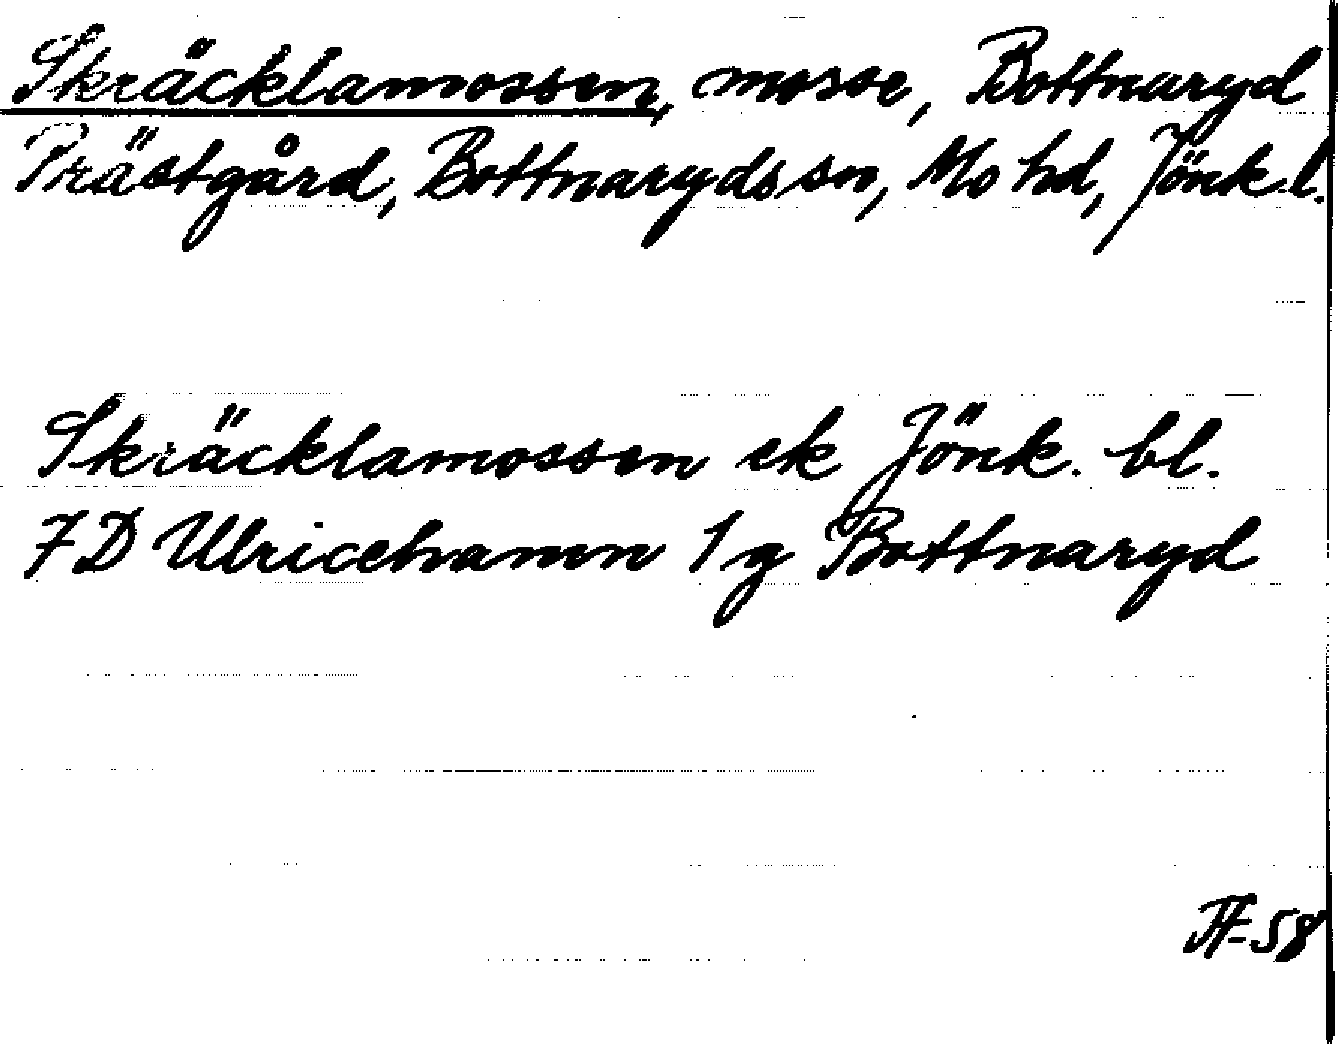 Skräcklamossen, mosse, Bottnaryd
Prästgård, Bottnaryds sn, Mo hd, Jönk.l.
Skräcklamossen ek Jönk. bl.
7D Ulricehamn 1g Bottnaryd
JF-58